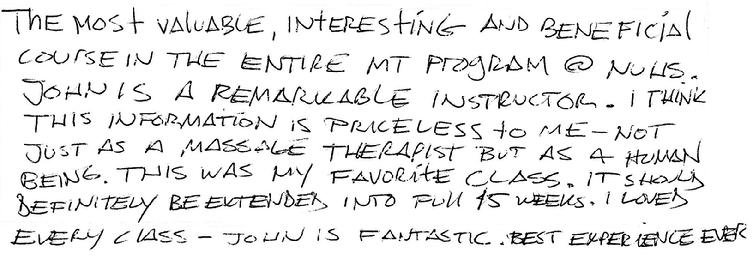 THE MOST VALUABLE, INTERESTING AND BENEFICIAL
COURSE IN THE ENTIRE MT PROGRAM @ NUHS.
JOHN IS A REMARKABLE INSTRUCTOR. I THINK
THIS INFORMATION IS PRICELESS to ME – NOT
JUST AS A MASSAGE THERAPIST BUT AS A HUMAN
BEING. THIS WAS MY FAVORITE CLASS. IT SHOULD
DEFINITELY BE EXTENDED INTO FULL 15 WEEKS. I LOVED
EVERY CLASS – JOHN IS FANTASTIC. BEST EXPERIENCE EVER